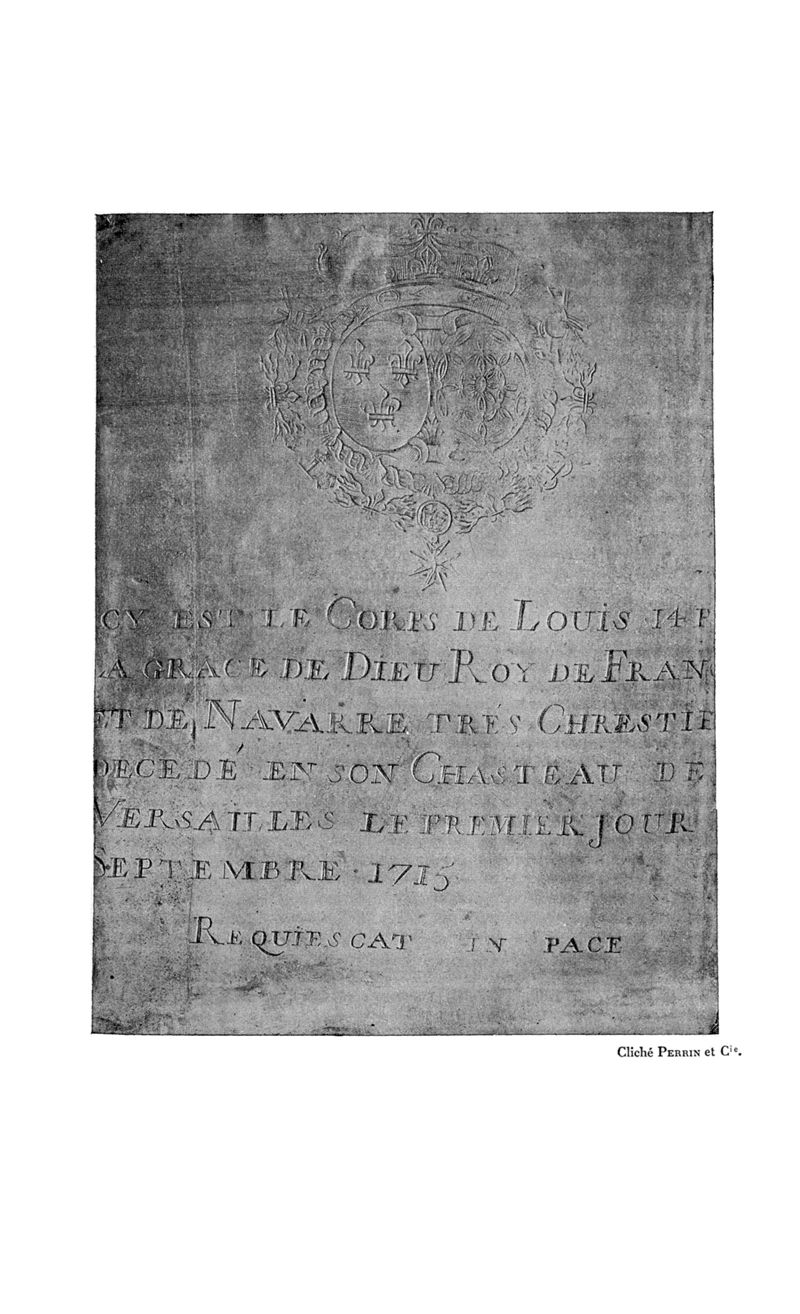 CY EST LE CORPS DE LOUIS 14 P
LA GRACE DE DIEU ROY DE FRANC
ET DE NAVARRE TRÉS CHRESTIE
DECEDÉ EN SON CHASTEAU DE
VERSAILLES LE PREMIER JOUR
SEPTEMBRE · 1715
REQUIESCAT IN PACE
Cliché PERRIN et Cie.